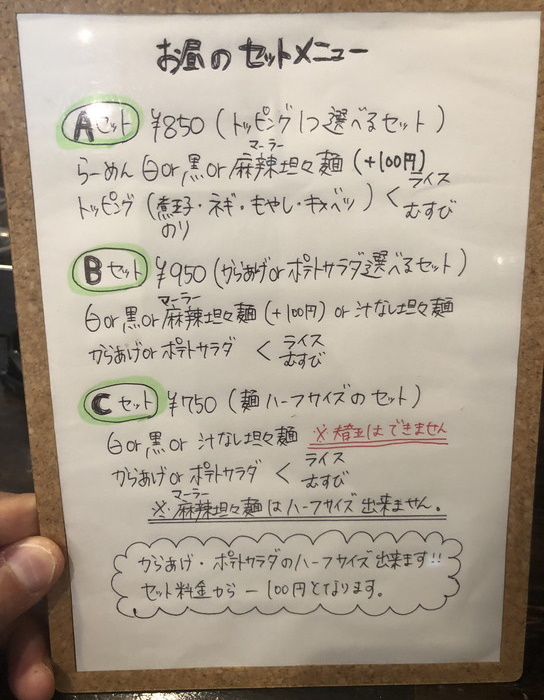 お昼のセットメニュー
Aセット ¥850 (トッピング1つ選べるセット)
らーめん 白or黒or麻辣坦々麺 (+100円)
マーラー
トッピング (煮玉子・ネギ・もやし・キャベツ) < ライス
のり むすび
Bセット ¥950 (からあげorポテトサラダ選べるセット)
マーラー
白or黒or麻辣坦々麺 (+100円) or 汁なし坦々麺
からあげorポテトサラダ < ライス
むすび
Cセット ¥750 (麺ハーフサイズのセット)
白or黒or 汁なし坦々麺 ※替玉はできません
からあげorポテトサラダ < ライス
むすび
マーラー
※麻辣坦々麺はハーフサイズ出来ません。
からあげ・ポテトサラダのハーフサイズ出来ます!!
セット料金から-100円となります。